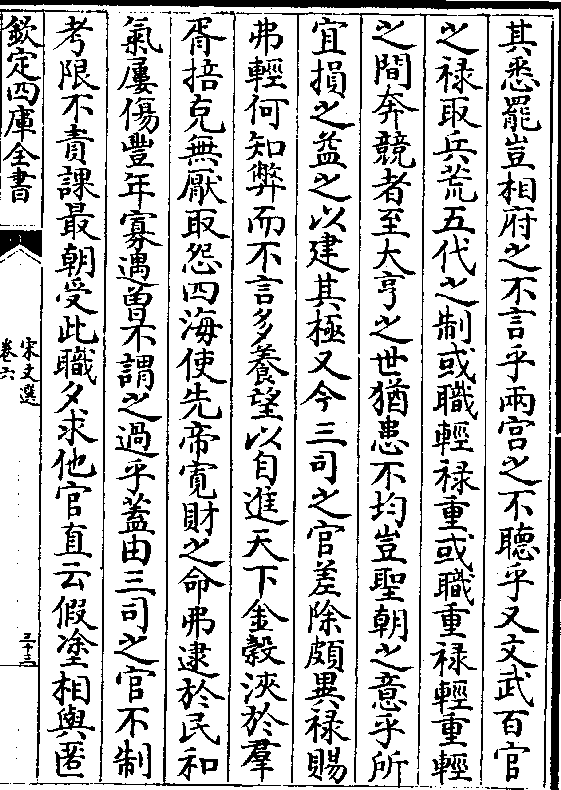 其悉罷豈相府之不言乎兩宮之不聽乎又文武百官
之禄取兵荒五代之制或職輕禄重或職重禄輕重輕
之間奔競者至大亨之世猶患不均豈聖朝之意乎所
宜損之益之以建其極又今三司之官差除頗異禄賜
弗輕何知弊而不言多養望以自進天下金穀浹於羣
胥掊克無厭取怨四海使先帝寛財之命弗逮於民和
氣屢傷豐年寡遇曽不謂之過乎蓋由三司之官不制
考限不責課最朝受此職夕求他官直云假塗相與匿
欽定四庫全書
宋文選
卷六
三十三